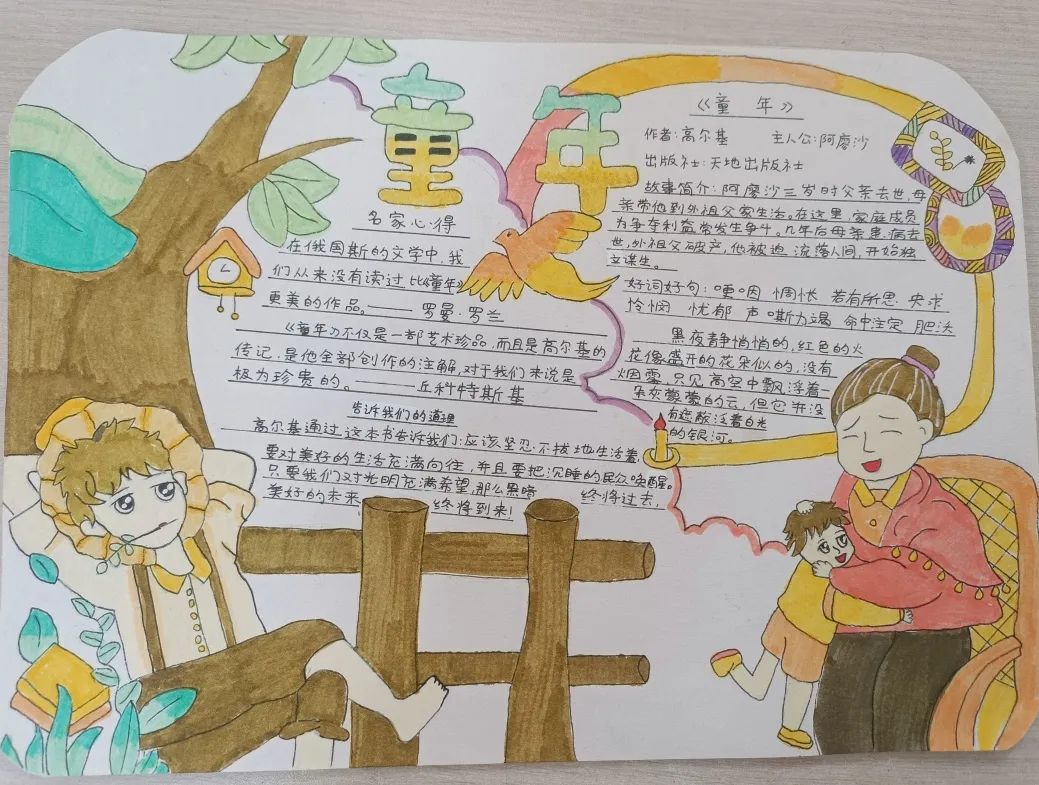 童年
名家心得
在俄国斯的文学中,我
们从来没有读过比《童年》
更美的作品。——罗曼·罗兰
《童年》不仅是一部艺术珍品,而且是高尔基的
传记,是他全部创作的注解,对于我们来说是
极为珍贵的。——丘科特斯基
告诉我们的道理
高尔基通过这本书告诉我们:应该坚忍不拔地生活着,
要对美好的生活充满向往,并且要把沉睡的民众唤醒。
只要我们对光明充满希望,那么黑暗 终将过去,
美好的未来 终将到来!
《童年》
作者:高尔基 主人公:阿廖沙
出版社:天地出版社
故事简介:阿廖沙三岁时父亲去世,母
亲带他到外祖父家生活。在这里,家庭成员
为争夺利益常发生争斗。几年后母亲患病去
世,外祖父破产,他被迫流落人间,开始独
立谋生。
好词好句:哽咽 惆怅 若有所思 央求
怜悯 忧郁 声嘶力竭 命中注定 肥沃
黑夜静悄悄的,红色的火
花像盛开的花朵似的,没有
烟雾,只见高空中飘浮着一
朵灰蒙蒙的云,但它并没
有遮蔽泛着白光
的银河。